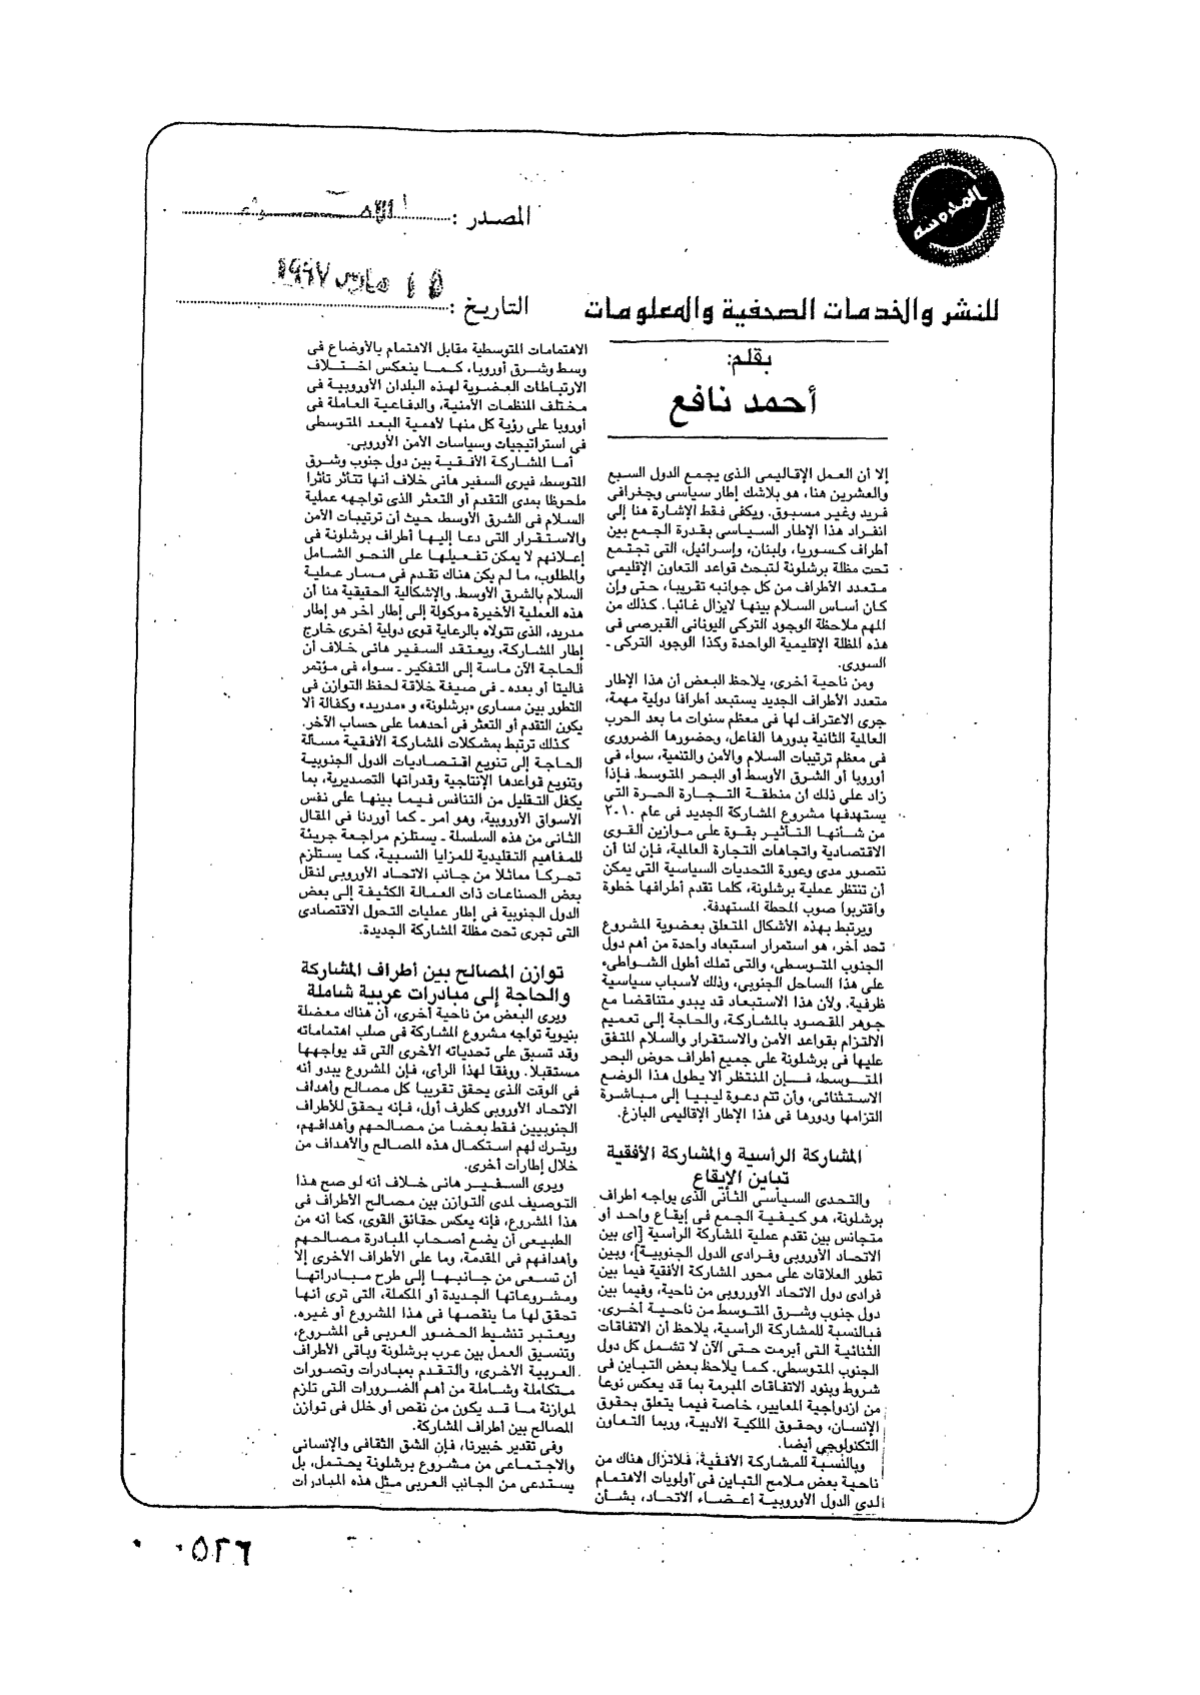 المدوسه
المصدر :
التاريخ : ١٥ مارس ١٩٩٧
للنشر والخدمات الصحفية والمعلومات
بقلم:
أحمد نافع
إلا أن العمل الإقاليمى الذى يجمع الدول السبع
والعشرين هنا، هو بلاشك إطار سياسى وجغرافى
فريد وغير مسبوق. ويكفى فقط الإشارة هنا إلى
انفراد هذا الإطار السياسى بقدرة الجمع بين
أطراف كسوريا، ولبنان، وإسرائيل، التى تجتمع
تحت مظلة برشلونة لتبحث قواعد التعاون الإقليمى
متعدد الأطراف من كل جوانبه تقريبا، حتى وإن
كان أساس السلام بينها لايزال غائبا. كذلك من
المهم ملاحظة الوجود التركى اليونانى القبرصى فى
هذه المظلة الإقليمية الواحدة وكذا الوجود التركى ـ
السورى.
ومن ناحية أخرى، يلاحظ البعض أن هذا الإطار
متعدد الأطراف الجديد يستبعد أطرافا دولية مهمة،
جرى الاعتراف لها فى معظم سنوات ما بعد الحرب
العالمية الثانية بدورها الفاعل، وحضورها الضرورى
فى معظم ترتيبات السلام والأمن والتنمية، سواء فى
أوروبا أو الشرق الأوسط أو البحر المتوسط. فإذا
زاد على ذلك ان منطقة التجارة الحرة التى
يستهدفها مشروع المشاركة الجديد فى عام ٢٠١٠
من شأنها التأثير بقوة على موازين القوى
الاقتصادية واتجاهات التجارة العالمية، فإن لنا أن
نتصور مدى وعورة التحديات السياسية التى يمكن
أن تنتظر عملية برشلونة، كلما تقدم أطرافها خطوة
واقتربوا صوب المحطة المستهدفة.
ويرتبط بهذه الأشكال المتعلق بعضوية المشروع
تحد آخر، هو استمرار استبعاد واحدة من أهم دول
الجنوب المتوسطى، والتى تملك أطول الشواطىء
على هذا الساحل الجنوبى، وذلك لأسباب سياسية
ظرفية. ولأن هذا الاستبعاد قد يبدو متناقضا مع
جوهر المقصود بالمشاركة، والحاجة إلى تعميم
الالتزام بقواعد الأمن والاستقرار والسلام المتفق
عليها فى برشلونة على جميع أطراف حوض البحر
المتوسط، فإن المنتظر ألا يطول هذا الوضع
الاستثنائى، وأن تتم دعوة ليبيا إلى مباشرة
التزامها ودورها فى هذا الإطار الإقاليمى البازغ.
المشاركة الرأسية والمشاركة الأفقية
تباين الإيقاع
والتحدى السياسى الثانى الذى يواجه أطراف
برشلونة، هو كيفية الجمع فى إيقاع واحد أو
متجانس بين تقدم عملية المشاركة الرأسية [أى بين
الاتحاد الأوروبى وفرادى الدول الجنوبية]، وبين
تطور العلاقات على محور المشاركة الأفقية فيما بين
فرادى دول الاتحاد الأوروبى من ناحية، وفيما بين
دول جنوب وشرق المتوسط من ناحية أخرى.
فبالنسبة للمشاركة الرأسية، يلاحظ أن الاتفاقات
الثنائية التى أبرمت حتى الآن لا تشمل كل دول
الجنوب المتوسطى. كما يلاحظ بعض التباين فى
شروط وبنود الاتفاقات المبرمة بما قد يعكس نوعا
من ازدواجية المعايير، خاصة فيما يتعلق بحقوق
الإنسان، وحقوق الملكية الأدبية، وربما التعاون
التكنولوجى أيضا.
وبالنسبة للمشاركة الأفقية، فلاتزال هناك من
ناحية بعض ملامح التباين فى أولويات الاهتمام
لدى الدول الأوروبية أعضاء الاتحاد، بشأن
الاهتمامات المتوسطية مقابل الاهتمام بالأوضاع فى
وسط وشرق أوروبا، كما ينعكس اختلاف
الارتباطات العضوية لهذه البلدان الأوروبية فى
مختلف المنظمات الأمنية، والدفاعية العاملة فى
أوروبا على رؤية كل منها لأهمية البعد المتوسطى
فى استراتيجيات وسياسات الأمن الأوروبى.
أما المشاركة الأفقية بين دول جنوب وشرق
المتوسط، فيرى السفير هانى خلاف أنها تتأثر تأثرا
ملحوظا بمدى التقدم أو التعثر الذى تواجهه عملية
السلام فى الشرق الأوسط، حيث أن ترتيبات الأمن
والاستقرار التى دعا إليها أطراف برشلونة فى
إعلانهم لا يمكن تفعيلها على النحو الشامل
والمطلوب، ما لم يكن هناك تقدم فى مسار عملية
السلام بالشرق الأوسط. والإشكالية الحقيقية هنا أن
هذه العملية الأخيرة موكولة إلى إطار آخر هو إطار
مدريد، الذى تتولاه بالرعاية قوى دولية أخرى خارج
إطار المشاركة، ويعتقد السفير هانى خلاف أن
الحاجة الآن ماسة إلى التفكير ـ سواء فى مؤتمر
فاليتا أو بعده ـ فى صيغة خلاقة لحفظ التوازن فى
التطور بين مسارى «برشلونة» و«مدريد» وكفالة ألا
يكون التقدم أو التعثر فى أحدهما على حساب الآخر.
كذلك ترتبط بمشكلات المشاركة الأفقية مسألة
الحاجة إلى تنويع اقتصاديات الدول الجنوبية
وتنويع قواعدها الإنتاجية وقدراتها التصديرية، بما
يكفل التقليل من التنافس فيما بينها على نفس
الأسواق الأوروبية، وهو أمر ـ كما أوردنا فى المقال
الثانى من هذه السلسلة ـ يستلزم مراجعة جريئة
للمفاهيم التقليدية للمزايا النسبية، كما يستلزم
تحركا مماثلا من جانب الاتحاد الأوروبى لنقل
بعض الصناعات ذات العمالة الكثيفة إلى بعض
الدول الجنوبية فى إطار عمليات التحول الاقتصادى
التى تجرى تحت مظلة المشاركة الجديدة.
توازن المصالح بين أطراف المشاركة
والحاجة إلى مبادرات عربية شاملة
ويرى البعض من ناحية أخرى، أن هناك معضلة
بنيوية تواجه مشروع المشاركة فى صلب اهتماماته
وقد تسبق على تحدياته الأخرى التى قد يواجهها
مستقبلا. ووفقا لهذا الرأى، فإن المشروع يبدو أنه
فى الوقت الذى يحقق تقريبا كل مصالح وأهداف
الاتحاد الأوروبى كطرف أول، فإنه يحقق للأطراف
الجنوبيين فقط بعضا من مصالحهم وأهدافهم،
ويترك لهم استكمال هذه المصالح والأهداف من
خلال إطارات أخرى.
ويرى السفير هانى خلاف أنه لو صح هذا
التوصيف لمدى التوازن بين مصالح الأطراف فى
هذا المشروع، فإنه يعكس حقائق القوى، كما أنه من
الطبيعى أن يضع أصحاب المبادرة مصالحهم
وأهدافهم فى المقدمة، وما على الأطراف الأخرى إلا
أن تسعى من جانبها إلى طرح مبادراتها
ومشروعاتها الجديدة أو المكملة، التى ترى أنها
تحقق لها ما ينقصها فى هذا المشروع أو غيره.
ويعتبر تنشيط الحضور العربى فى المشروع،
وتنسيق العمل بين عرب برشلونة وباقى الأطراف
العربية الأخرى، والتقدم بمبادرات وتصورات
متكاملة وشاملة من أهم الضرورات التى تلزم
لموازنة ما قد يكون من نقص أو خلل فى توازن
المصالح بين أطراف المشاركة.
وفى تقدير خبيرنا، فإن الشق الثقافى والإنسانى
والاجتماعى من مشروع برشلونة يحتمل، بل
يستدعى من الجانب العربى مثل هذه المبادرات
٠٠٥٢٦